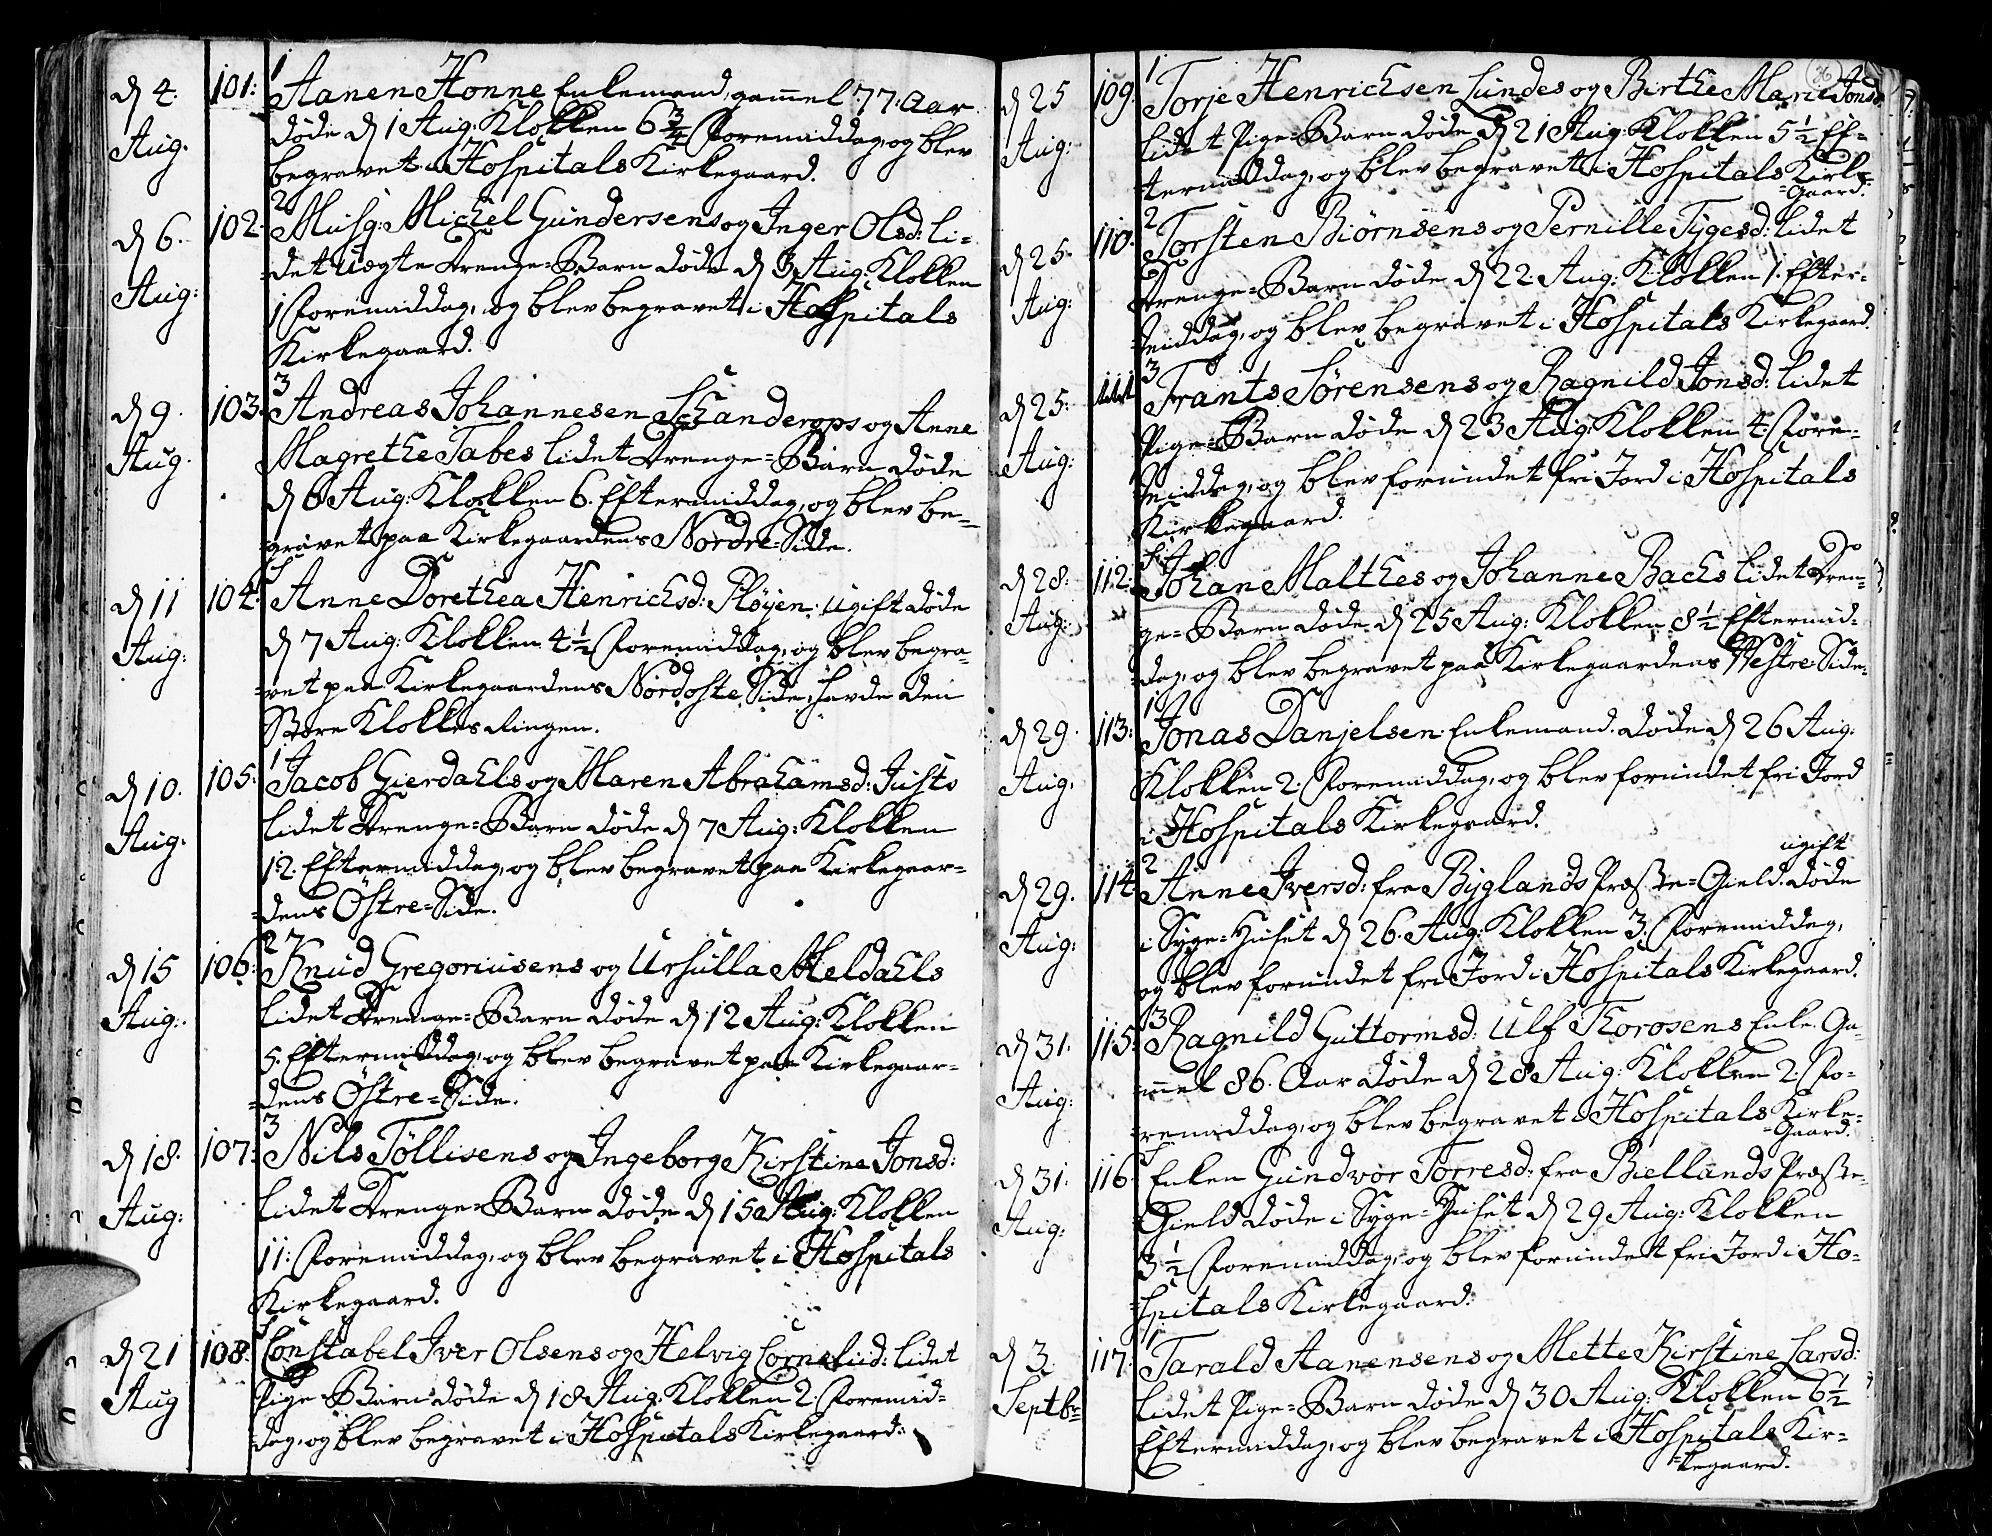 d 4. Aug. 101: 1
Aanen Honne Enkemand, gammel 77. Aar
døde d 1 Aug: Klokken 6 3/4 Formiddag, og blev
begravet i Hospitals Kirkegaard.
d 6. Aug: 102. 2
Musq: Michel Gundersens og Inger Olsd: li-
-det uægte Drenge-Barn døde d 3 Aug: Klokken
1 Formiddag, og blev begravet i Hospitals
Kirkegaard.
d 9. Aug. 103. 3
Andreas Johannesen Schanderops og Anne
Magrethe Tabes lidet Drenge-Barn døde
d 6 Aug: Klokken 6. Eftermiddag, og blev be-
-gravet paa Kirkegaardens Nordre-Side.
d 11 Aug: 104.
Anne Dorethea Henrichsd: Pløyen. ugift døde
d 7 Aug: Klokken 4 1/2 Formiddag, og blev begra-
-vet paa Kirkegaardens Nordoste Side, havde den
Store Klokkes Ringen.
d 10. Aug. 105: 1
Jacob Gierdahls og Maren Abrahamsd: Justs
lidet Drenge-Barn døde d 7 Aug: Klokken
12. Eftermiddag, og blev begravet paa Kirkegaar-
-dens Östre-Side.
d 15 Aug: 106: 2
Knud Gregoriusens og Ursulla Meldahls
lidet Drenge-Barn døde d 12 Aug: Klokken
5. Eftermiddag, og blev begravet paa Kirkegaar-
-dens Östre-Side.
d 18. Aug: 107: 3
Nils Töllisens og Ingeborg Kirstine Jonsd:
lidet Drenge-Barn døde d 15 Aug: Klokken
11: Formiddag, og blev begravet i Hospitals
Kirkegaard.
d 21 Aug 108.
Constabel Iver Olsens og Helvig Cornelied: lidet
Pige-Barn døde d 18 Aug: Klokken 2. Formid-
-dag, og blev begravet i Hospitals Kirkegaard.
36
d 25 Aug: 109. 1
Torje Henrichsen Lundes og Birthe Marie Jonsd:
lidet Pige-Barn døde d 21 Aug: Klokken 5 1/2 Ef-
termiddag, og blev begravet i Hospitals Kirke-
-Gaard.
d 25. Aug: 110. 2
Torsten Biørnsens og Pernille Tygesd: lidet
Drenge-Barn døde d 22. Aug: Klokken 1. Efter-
-middag, og blev begravet i Hospitals Kirkegaard.
d 25. Aug: 111 3
Frants Sørensens og Ragnild Jonsd: lidet
Pige-Barn døde d 23 Aug: Klokken 4. For-
-middag, og blev forundet fri Jord i Hospitals
Kirkegaard.
d 28. Aug: 112:
Johan Malthes og Johanne Bachs lidet Dren-
ge-Barn døde d 25 Aug: Klokken 8 1/2 Eftermid-
-dag, og blev begravet paa Kirkegaardens Westre Side.
d 29. Aug. 113: 1
Jonas Danjelsen Enkemand. døde d 26 Aug.
Klokken 2. Formiddag, og blev forundet fri Jord
i Hospitals Kirkegaard.
d 29. Aug: 114 2 ugift
Anne Iversd: fra Byglands Præste-Gield. døde
i Syge-Huset d 26. Aug: Klokken 3. Formiddag,
og blev forundet fri Jord i Hospitals Kirkegaard.
d 31. Aug: 115. 3
Ragnild Guttormsd: Ulf Torosens Enke. Ga-
-mel 86. Aar døde d 28 Aug: Klokken 2. For-
-remiddag, og blev begravet i Hospitals Kirke-
-Gaard.
d 31. Aug: 116.
Enken Gundvor Torresd: fra Biellands Præste-
Gield døde i Syge-Huset d 29 Aug: Klokken
3 1/2 Formiddag, og blev forundet fri Jord i Ho-
-spitals Kirkegaard.
d 3. Septbr 117: 1
Tarald Aanensens og Mette Kirstine Larsd:
lidet Pige-Barn døde d 30 Aug: Klokken 6 1/2
Eftermiddag, og blev begravet i Hospitals Kir-
-kegaard.